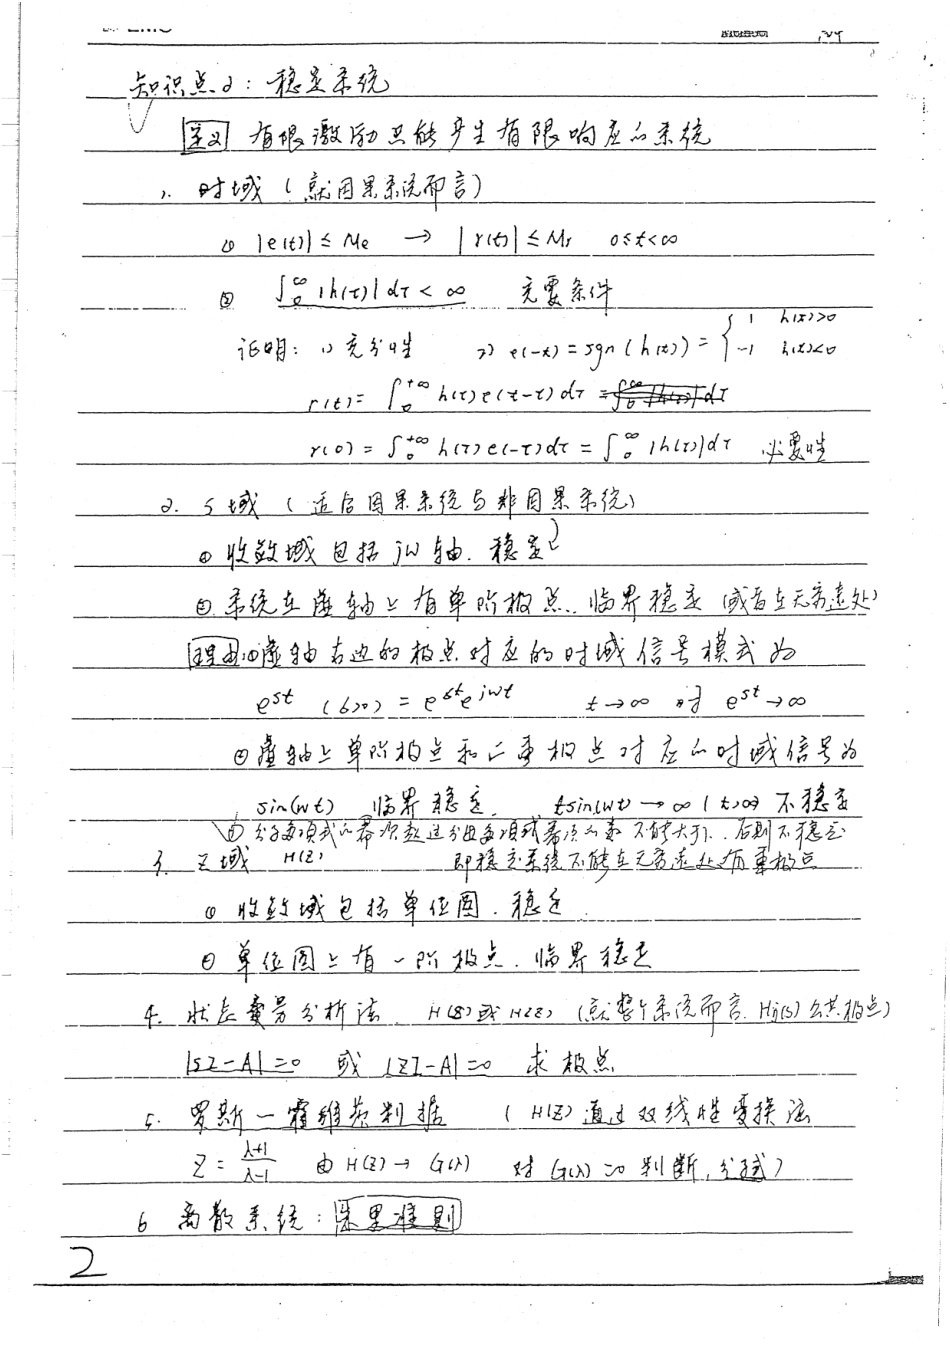 知识点2：稳定系统
定义 有限激励只能产生有限响应的系统
1. 时域（就因果系统而言）
① |e(t)| ≤ Me → |r(t)| ≤ Mr 0≤t<∞
② ∫₀^∞ |h(τ)| dτ < ∞ 充要条件
证明：1) 充分性 2) e(-t) = sgn(h(t)) = { 1 h(t)>0
-1 h(t)<0
r(t) = ∫₀^{+∞} h(τ)e(t-τ)dτ
r(0) = ∫₀^{+∞} h(τ)e(-τ)dτ = ∫₀^∞ |h(τ)|dτ 必要性
2. S域（适合因果系统与非因果系统）
① 收敛域包括jw轴. 稳定
② 系统在虚轴上有单阶极点. 临界稳定（或者在无穷远处）
理由 ① 虚轴右边的极点对应的时域信号模式为
e^{st} (6>0) = e^{6t}e^{jwt} t→∞ 时 e^{st}→∞
② 虚轴上单阶极点和二重极点对应的时域信号为
sin(wt) 临界稳定. tsin(wt)→∞ (t→∞) 不稳定
分子多项式的幂次超过分母多项式幂次的 不能大于1. 否则不稳定
即稳定系统不能在无穷远处有重极点
3. Z域 H(Z)
① 收敛域包括单位圆. 稳定
② 单位圆上有一阶极点. 临界稳定
4. 状态变量分析法 H(S)或H(Z) （就整个系统而言. Hij(s)公共极点）
|SI-A|=0 或 |ZI-A|=0 求极点
5. 罗斯—霍维茨判据 （H(Z)通过双线性变换法
Z = (λ+1)/(λ-1) 由H(Z)→G(λ) 对G(λ) 判断,
6 离散系统：朱里准则
2